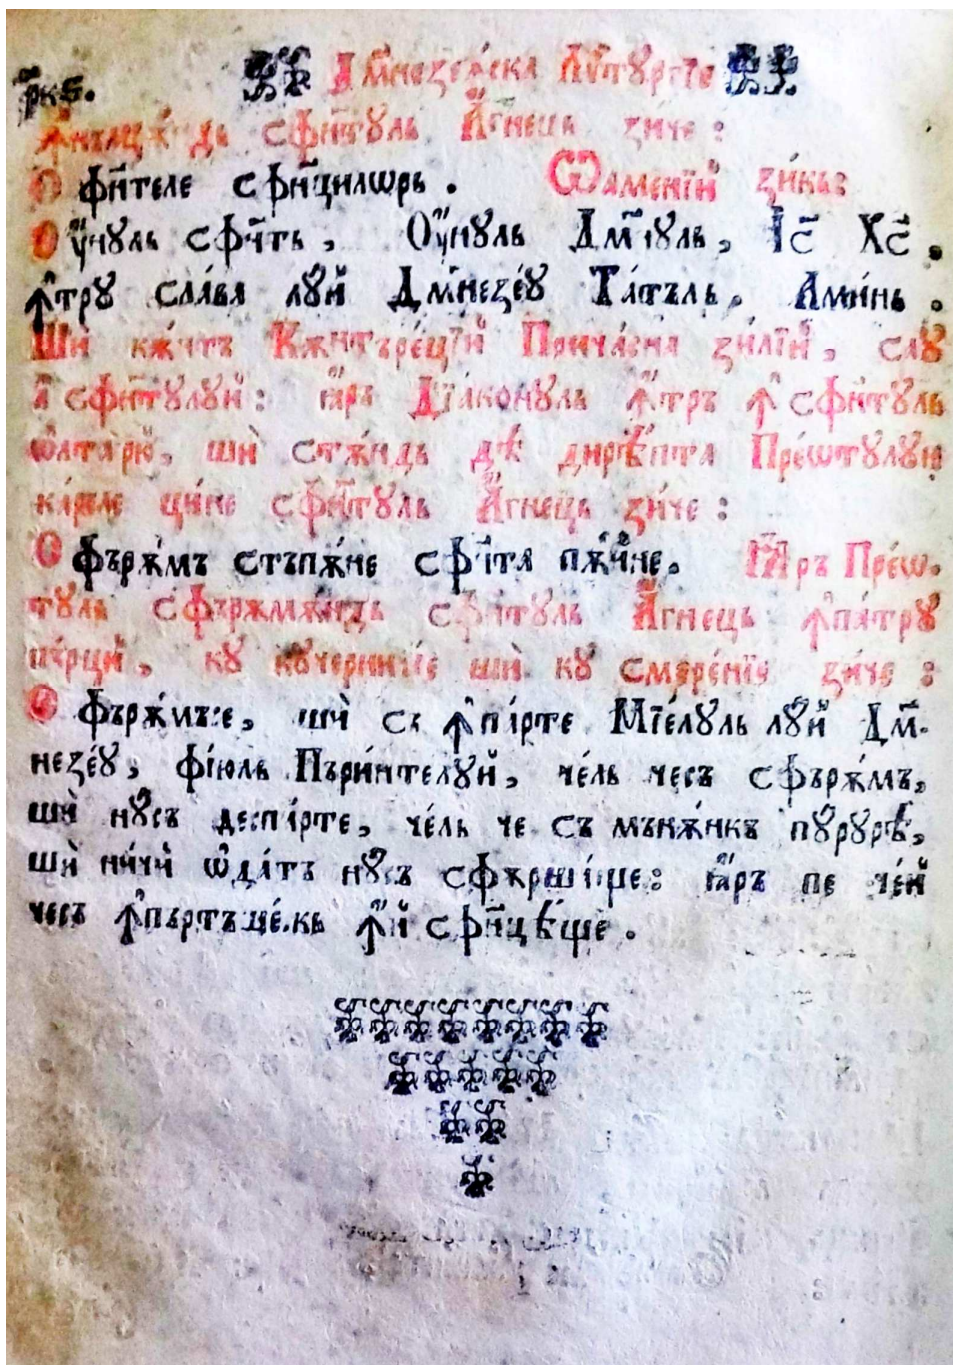 рк҃ѕ. Дм҃незеѧска Лѷтꙋргїе
Ꙟнълцѫндь сфн҃тꙋль А҆гнець зи́че :
Сфн҃теле сфн҃цилѡрь . Ѿаменїй зи́кь:
Оу҆нꙋль сфн҃ть , Оу҆нꙋль Дмнꙋль , І҆с҃ Хс҃ .
ꙟ҆трꙋ сла́ва лꙋй Дмнезеꙋ Та́тъль , Ами́нь .
Шѝ кѫ́нтъ Кѫнтъре́цїй Причѧсна зи́лїй , саꙋ
а҆ сфн҃тꙋлꙋй : ꙗ҆ръ Дїаконꙋль ꙟ҆тръ ꙟ҆ сфн҃тꙋль
ѡ҆лта́рю , шѝ стѫ́ндь дѣ дирѣ́пта Прео́тꙋлꙋй
ка́реле ци́не сфн҃тꙋль А҆гнець зи́че :
Сфърѫ́мъ стъпѫ́не сфн҃та пѫ́йне . Ꙗ҆ръ Пре́ѡ-
тꙋль сфърѫмѫ́ндь сфн҃тꙋль А҆гнець ꙟ҆па́трꙋ
пъ́рцй , кꙋ кꙋчерничїе шѝ кꙋ смере́нїе зи́че :
Сфърѫ́мъсе , шѝ сѫ ꙟ҆па́рте Мїе́лꙋль лꙋй Дм҃-
незе́ꙋ , фі́юль Пъри́нтелꙋй , че́ль чесъ сфърѫ́мъ ,
шѝ нꙋ́съ деспа́рте , че́ль че съ мънѫ́нкъ пꙋрꙋрѣ ,
шѝ ни́чй ѡ҆да́тъ нꙋ́съ сфѫрша́ще : ꙗ҆ръ пе че́й
чесъ ꙟ҆пъртъше́скь ꙟ҆й сфн҃цѣ́ще .